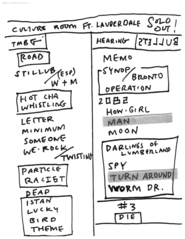 CULTURE ROOM FT. LAUDERDALE SOLD OUT!
TMBG
ROAD
STILLUB (ESP)
W + M
HOT CHA
WHISTLING
LETTER
MINIMUM
SOMEONE
WE ROCK
TWISTING
PARTICLE
RACIST
DEAD
ISTAN
LUCKY
BIRD
THEME
HEARING
BULLETS
MEMO
SYNOP/
BRONTO
OPERATION
HOW-GIRL
MAN
MOON
DARLINGS OF
LUMBERLAND
SPY
TURN AROUND
WORM DR.
#3
DIE